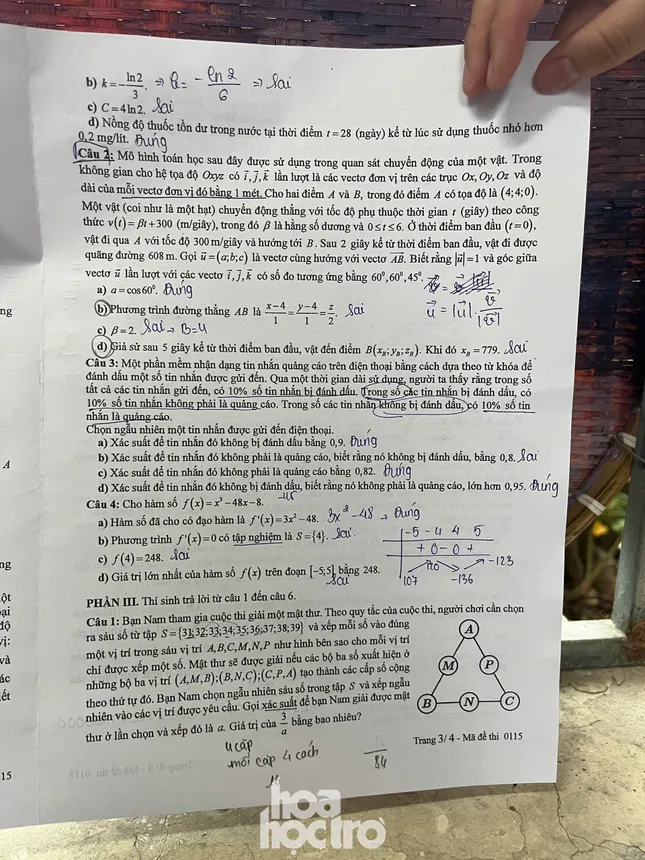 b) k = −ln2/3. ⇒ k = −ln2/6 ⇒ Sai
c) C = 4ln2. Sai
d) Nồng độ thuốc tồn dư trong nước tại thời điểm t = 28 (ngày) kể từ lúc sử dụng thuốc nhỏ hơn
0,2 mg/lít. Đúng
Câu 2: Mô hình toán học sau đây được sử dụng trong quan sát chuyển động của một vật. Trong
không gian cho hệ tọa độ Oxyz có i⃗, j⃗, k⃗ lần lượt là các vectơ đơn vị trên các trục Ox, Oy, Oz và độ
dài của mỗi vectơ đơn vị đó bằng 1 mét. Cho hai điểm A và B, trong đó điểm A có tọa độ là (4;4;0).
Một vật (coi như là một hạt) chuyển động thẳng với tốc độ phụ thuộc thời gian t (giây) theo công
thức v(t) = βt + 300 (m/giây), trong đó β là hằng số dương và 0 ≤ t ≤ 6. Ở thời điểm ban đầu (t = 0),
vật đi qua A với tốc độ 300 m/giây và hướng tới B. Sau 2 giây kể từ thời điểm ban đầu, vật đi được
quãng đường 608 m. Gọi u⃗ = (a;b;c) là vectơ cùng hướng với vectơ AB⃗. Biết rằng |u⃗| = 1 và góc giữa
vectơ u⃗ lần lượt với các vectơ i⃗, j⃗, k⃗ có số đo tương ứng bằng 60⁰, 60⁰, 45⁰.
a) a = cos60⁰. Đúng
u⃗ = |u⃗| . v⃗/|v⃗|
b) Phương trình đường thẳng AB là (x−4)/1 = (y−4)/1 = z/2. Sai
c) β = 2. Sai → B=4
d) Giả sử sau 5 giây kể từ thời điểm ban đầu, vật đến điểm B(x_B; y_B; z_B). Khi đó x_B = 779. Sai
Câu 3: Một phần mềm nhận dạng tin nhắn quảng cáo trên điện thoại bằng cách dựa theo từ khóa để
đánh dấu một số tin nhắn được gửi đến. Qua một thời gian dài sử dụng, người ta thấy rằng trong số
tất cả các tin nhắn gửi đến, có 10% số tin nhắn bị đánh dấu. Trong số các tin nhắn bị đánh dấu, có
10% số tin nhắn không phải là quảng cáo. Trong số các tin nhắn không bị đánh dấu, có 10% số tin
nhắn là quảng cáo.
Chọn ngẫu nhiên một tin nhắn được gửi đến điện thoại.
a) Xác suất để tin nhắn đó không bị đánh dấu bằng 0,9. Đúng
b) Xác suất để tin nhắn đó không phải là quảng cáo, biết rằng nó không bị đánh dấu, bằng 0,8. Sai
c) Xác suất để tin nhắn đó không phải là quảng cáo bằng 0,82. Đúng
d) Xác suất để tin nhắn đó không bị đánh dấu, biết rằng nó không phải là quảng cáo, lớn hơn 0,95. Đúng
Câu 4: Cho hàm số f(x) = x³ − 48x − 8.
a) Hàm số đã cho có đạo hàm là f'(x) = 3x² − 48. 3x² − 48 → Đúng
b) Phương trình f'(x) = 0 có tập nghiệm là S = {4}. Sai
-5 -4 4 5
+ 0 - 0 +
c) f(4) = 248. Sai
107 120 -136 -123
d) Giá trị lớn nhất của hàm số f(x) trên đoạn [−5;5] bằng 248.
Sai
PHẦN III. Thí sinh trả lời từ câu 1 đến câu 6.
Câu 1: Bạn Nam tham gia cuộc thi giải một mật thư. Theo quy tắc của cuộc thi, người chơi cần chọn
ra sáu số từ tập S = {31;32;33;34;35;36;37;38;39} và xếp mỗi số vào đúng
một vị trí trong sáu vị trí A, B, C, M, N, P như hình bên sao cho mỗi vị trí
chỉ được xếp một số. Mật thư sẽ được giải nếu các bộ ba số xuất hiện ở
những bộ ba vị trí (A,M,B); (B,N,C); (C,P,A) tạo thành các cấp số cộng
theo thứ tự đó. Bạn Nam chọn ngẫu nhiên sáu số trong tập S và xếp ngẫu
nhiên vào các vị trí được yêu cầu. Gọi xác suất để bạn Nam giải được mật
thư ở lần chọn và xếp đó là a. Giá trị của 3/a bằng bao nhiêu?
A
M P
B N C
Trang 3/4 - Mã đề thi 0115
4 cặp
mỗi cặp 4 cách
84
hoa
học trò
ng
A
ng
ột
đại
độ
vị:
và
các
ết
15